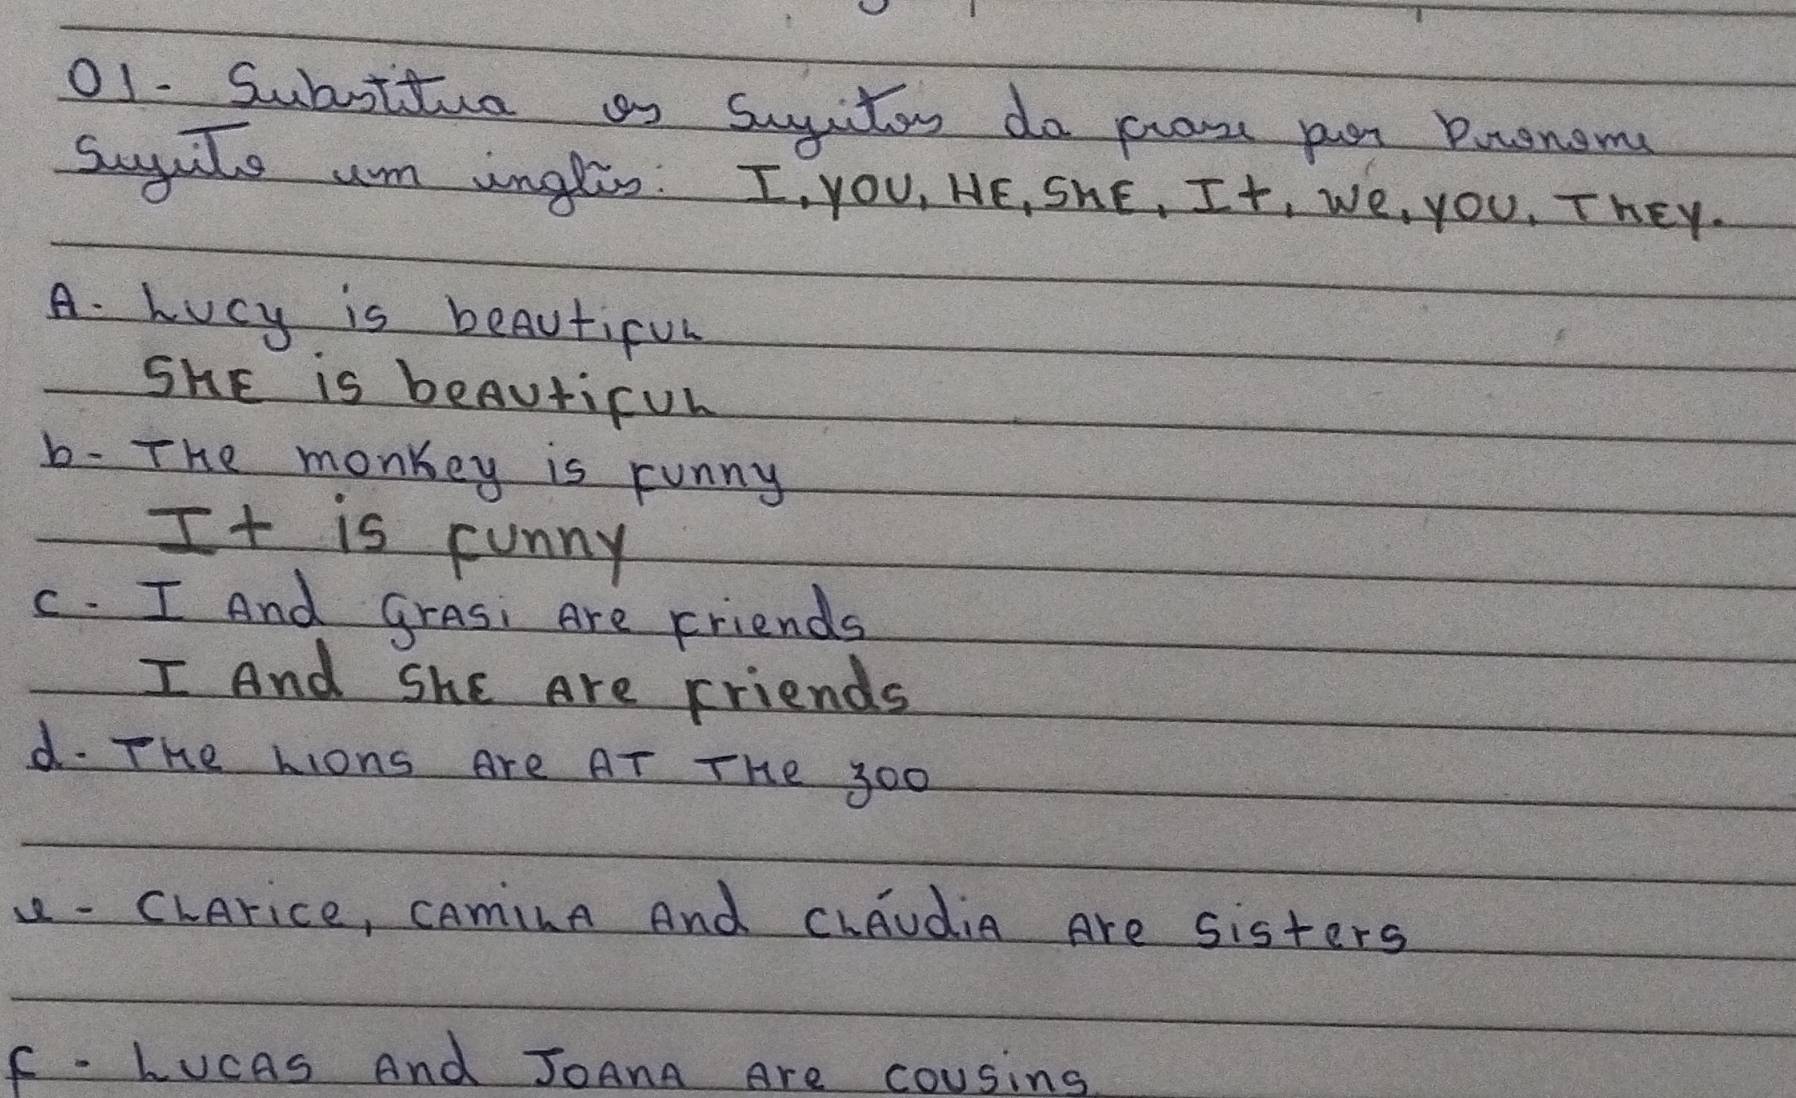 01- Substitua os Sujeitos da frase por Pronome
Sujeito em inglês: I, YOU, HE, SHE, It, We, YOU, THEY.
A- Lucy is beautiful
SHE is beautiful
b- The monkey is funny
It is funny
c- I And Grasi Are friends
I And SHE Are friends
d- The Lions Are AT THe zoo
e- Clarice, Camila And Cláudia Are Sisters
F- Lucas And Joana Are cousins